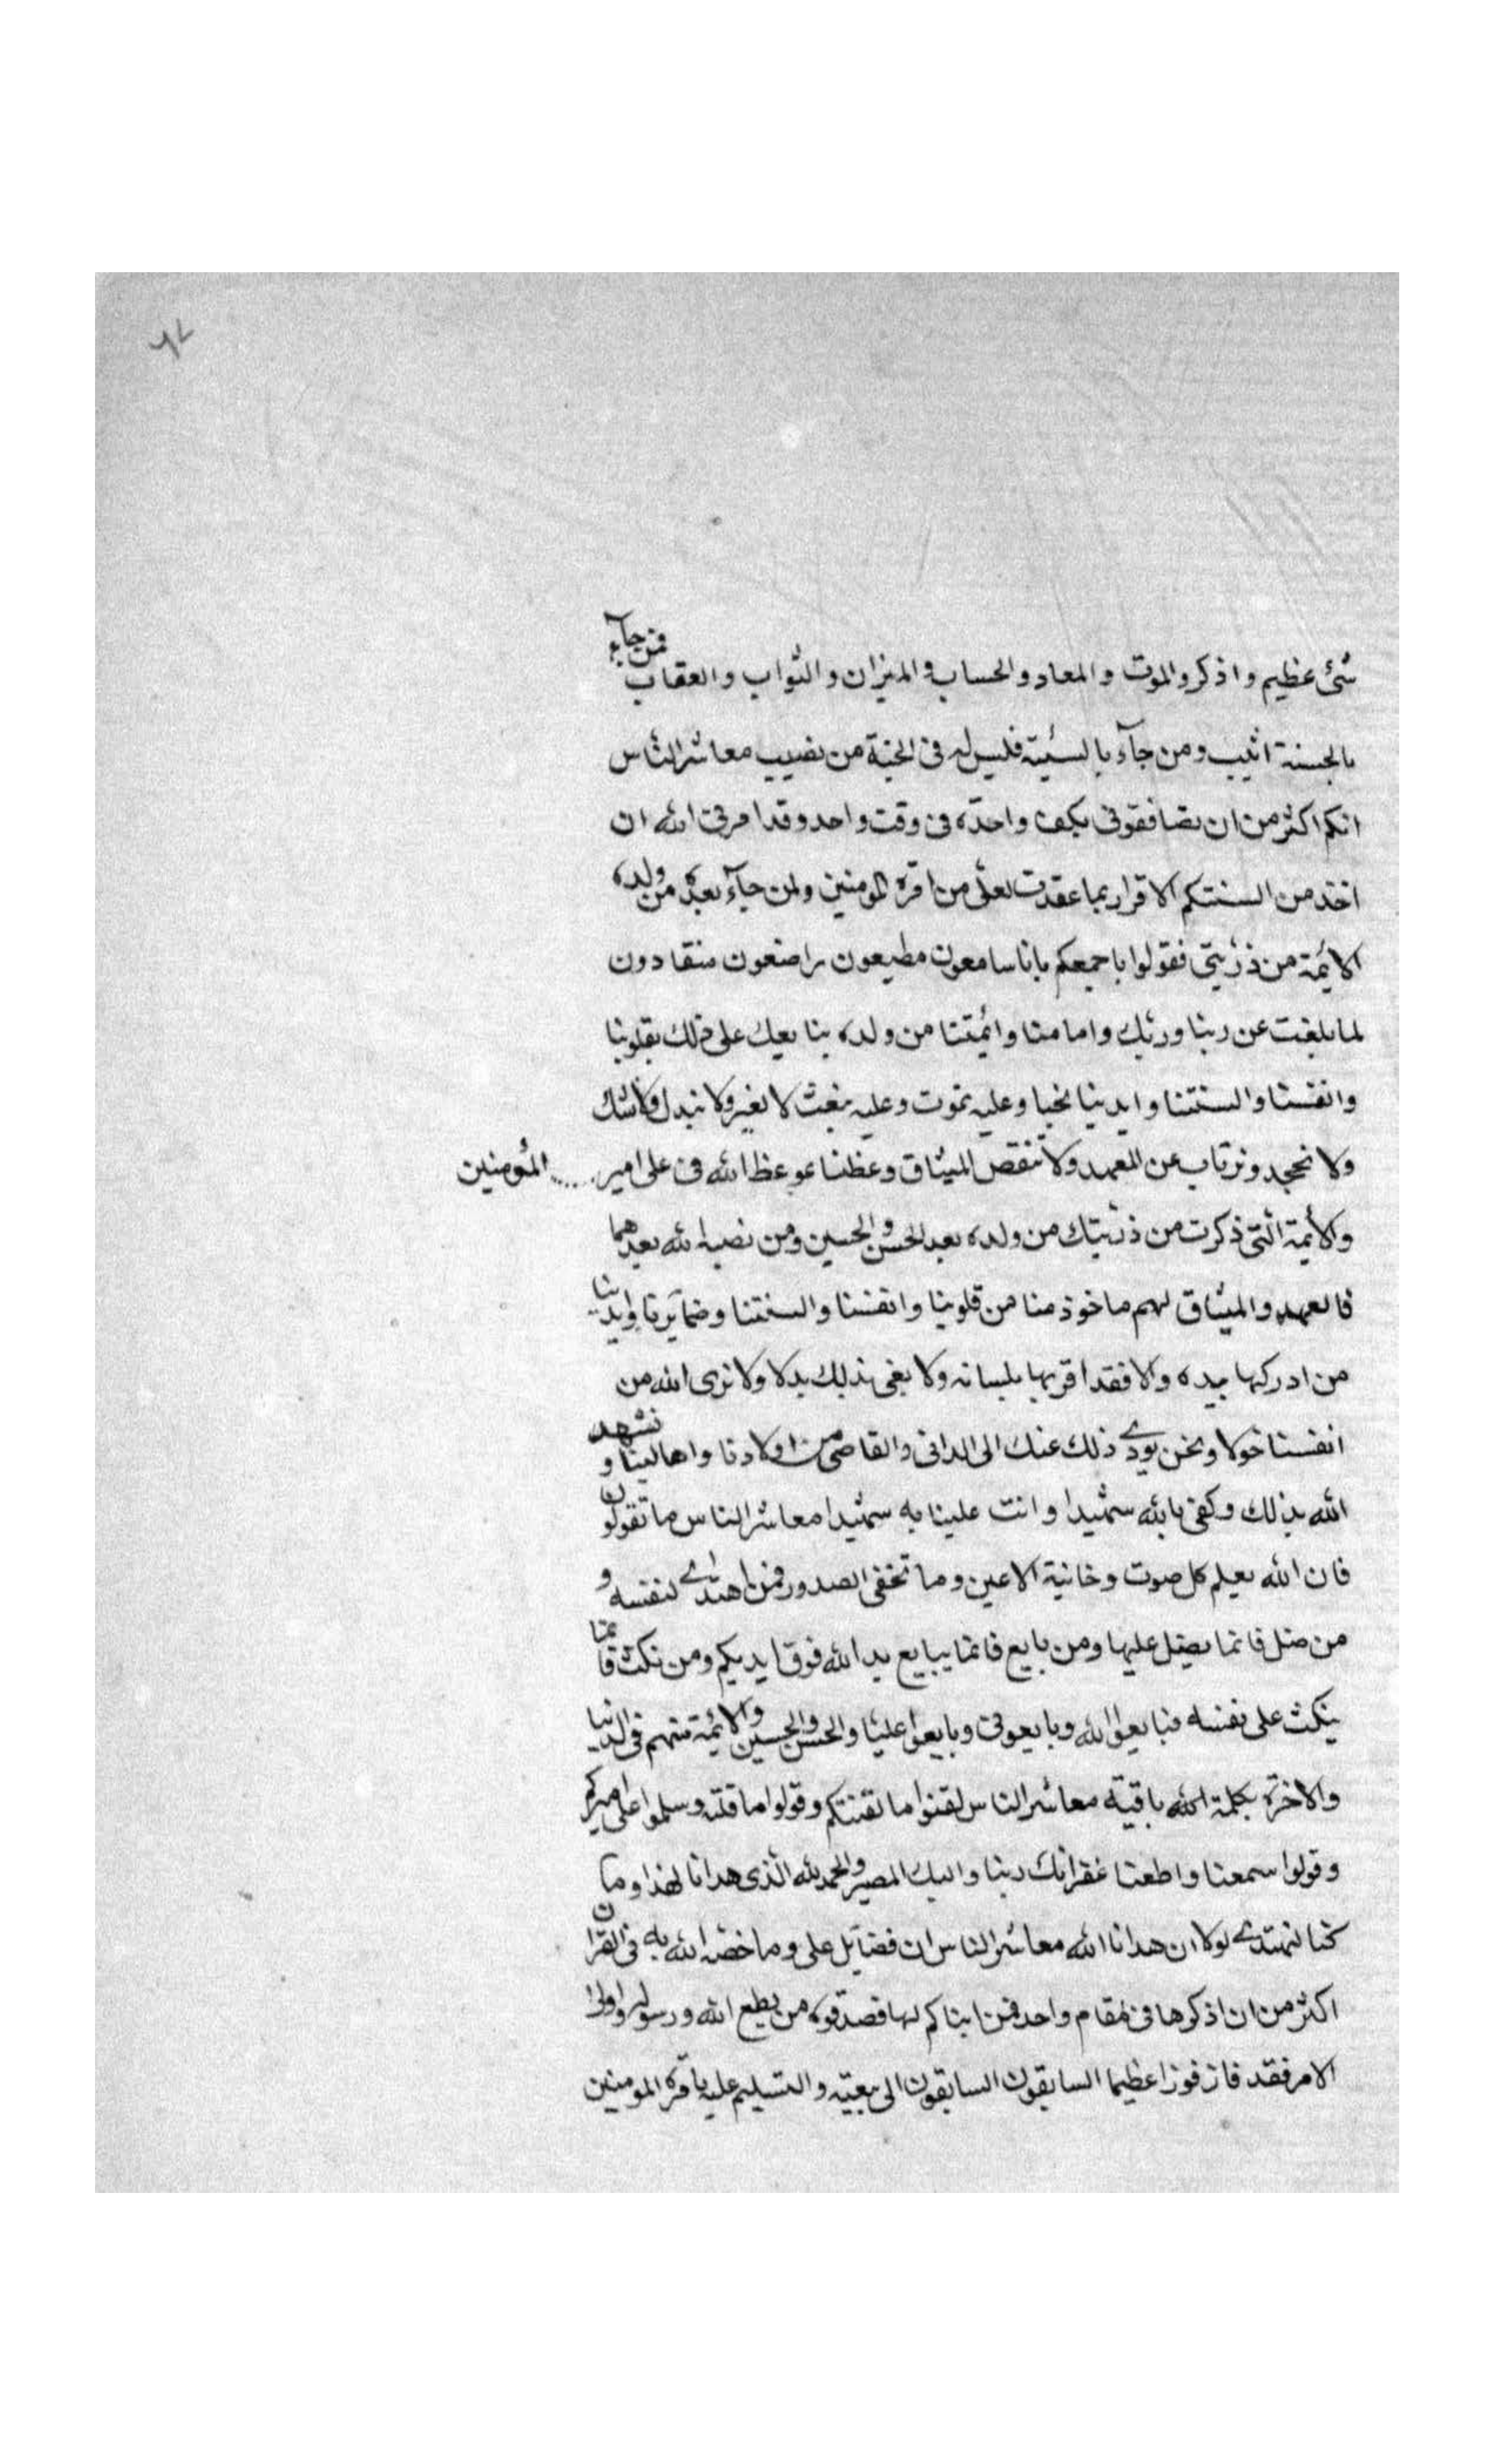 ٦٧
شئ عظيم واذكروا الموت والمعاد والحساب والميزان والثواب والعقاب فمن جآء
بالحسنة اثيب ومن جآء بالسيئة فليس له فى الجنة من نصيب معاشر الناس
انكم اكثر من ان تصافقونى بكف واحدة فى وقت واحد وقد امرنى الله ان
اخذ من السنتكم الاقرار بما عقدت لعلى من امرة المومنين ولمن جآء بعده من ولده
الايمة من ذريتى فقولوا باجمعكم بانا سامعون مطيعون راضعون منقادون
لما بلغت عن ربنا وربك وامامنا وائمتنا من ولده بنا يعك على ذلك بقلوبنا
وانفسنا والسنتنا وايدينا نحيا وعليه نموت وعليه نبعث لا نغير ولا نبدل ولا نشك
ولا نجحد ونرتاب عن العهد ولا ننقص الميثاق وعظنا عوعظ الله فى على امير ..... المؤمنين
والأيمة التى ذكرت من ذريتك من ولده بعد الحسن والحسين ومن نصبه الله بعدهما
فالعهد والميثاق لهم ماخوذ منا من قلوبنا وانفسنا والسنتنا وضمآيرنا وايدينا
من ادركها بيده والا فقد اقر بها بلسانه ولا يبغى بذلك بدلا ولا نرى الله من
انفسنا خولا ونحن يودے ذلك عنك الى الدانى والقاصى من اولادنا واهالينا و نشهد
الله بذلك وكفى بالله شهيدا وانت علينا به شهيدا معاشر الناس ما تقولون
فان الله يعلم كل صوت وخانية الاعين وما تخفى الصدور فمن اهتدے لنفسه و
من ضل فانما يضل عليها ومن بايع فانما يبايع يد الله فوق ايديكم ومن نكث فانما
ينكث على نفسه فبايعوا الله وبايعونى وبايعوا عليا والحسن والحسين والائمة منهم فى الدنيا
والاخرة بكلمة الله باقية معاشر الناس لقنوا ما لقنتكم وقولوا ما قلته وسلموا على اميركم
وقولوا سمعنا واطعنا غفرانك ربنا واليك المصير والحمد لله الذى هدانا لهذا وما
كنا لنهتدے لولا ان هدانا الله معاشر الناس ان فضآيل على وما خصه الله به فى القران
اكثر من ان اذكرها فى مقام واحد فمن انباكم لها فصدقوه من يطع الله ورسوله واولى
الامر فقد فاز فوزا عظيما السابقون السابقون الى بيعته والتسليم عليه بامرة المومنين